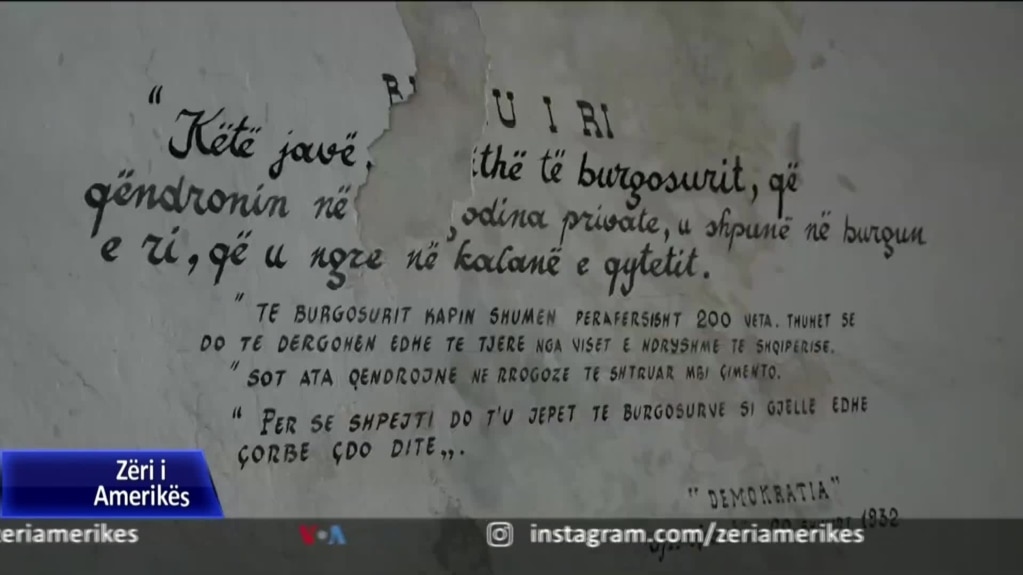 U I RI
" Këtë javë, ithë të burgosurit, që
qëndronin në odina private, u shpunë në burgun
e ri, që u ngre në kalanë e qytetit.
" TE BURGOSURIT KAPIN SHUMEN PERAFERSISHT 200 VETA. THUHET SE
DO TE DERGOHEN EDHE TE TJERE NGA VISET E NDRYSHME TE SHQIPERISE.
" SOT ATA QENDROJNE NE RROGOZE TE SHTRUAR MBI ÇIMENTO.
" PER SE SHPEJTI DO T'U JEPET TE BURGOSURVE SI GJELLE EDHE
ÇORBE ÇDO DITE„.
" DEMOKRATIA "
1932
Zëri i
Amerikës
zeriamerikes
VOA
instagram.com/zeriamerikes